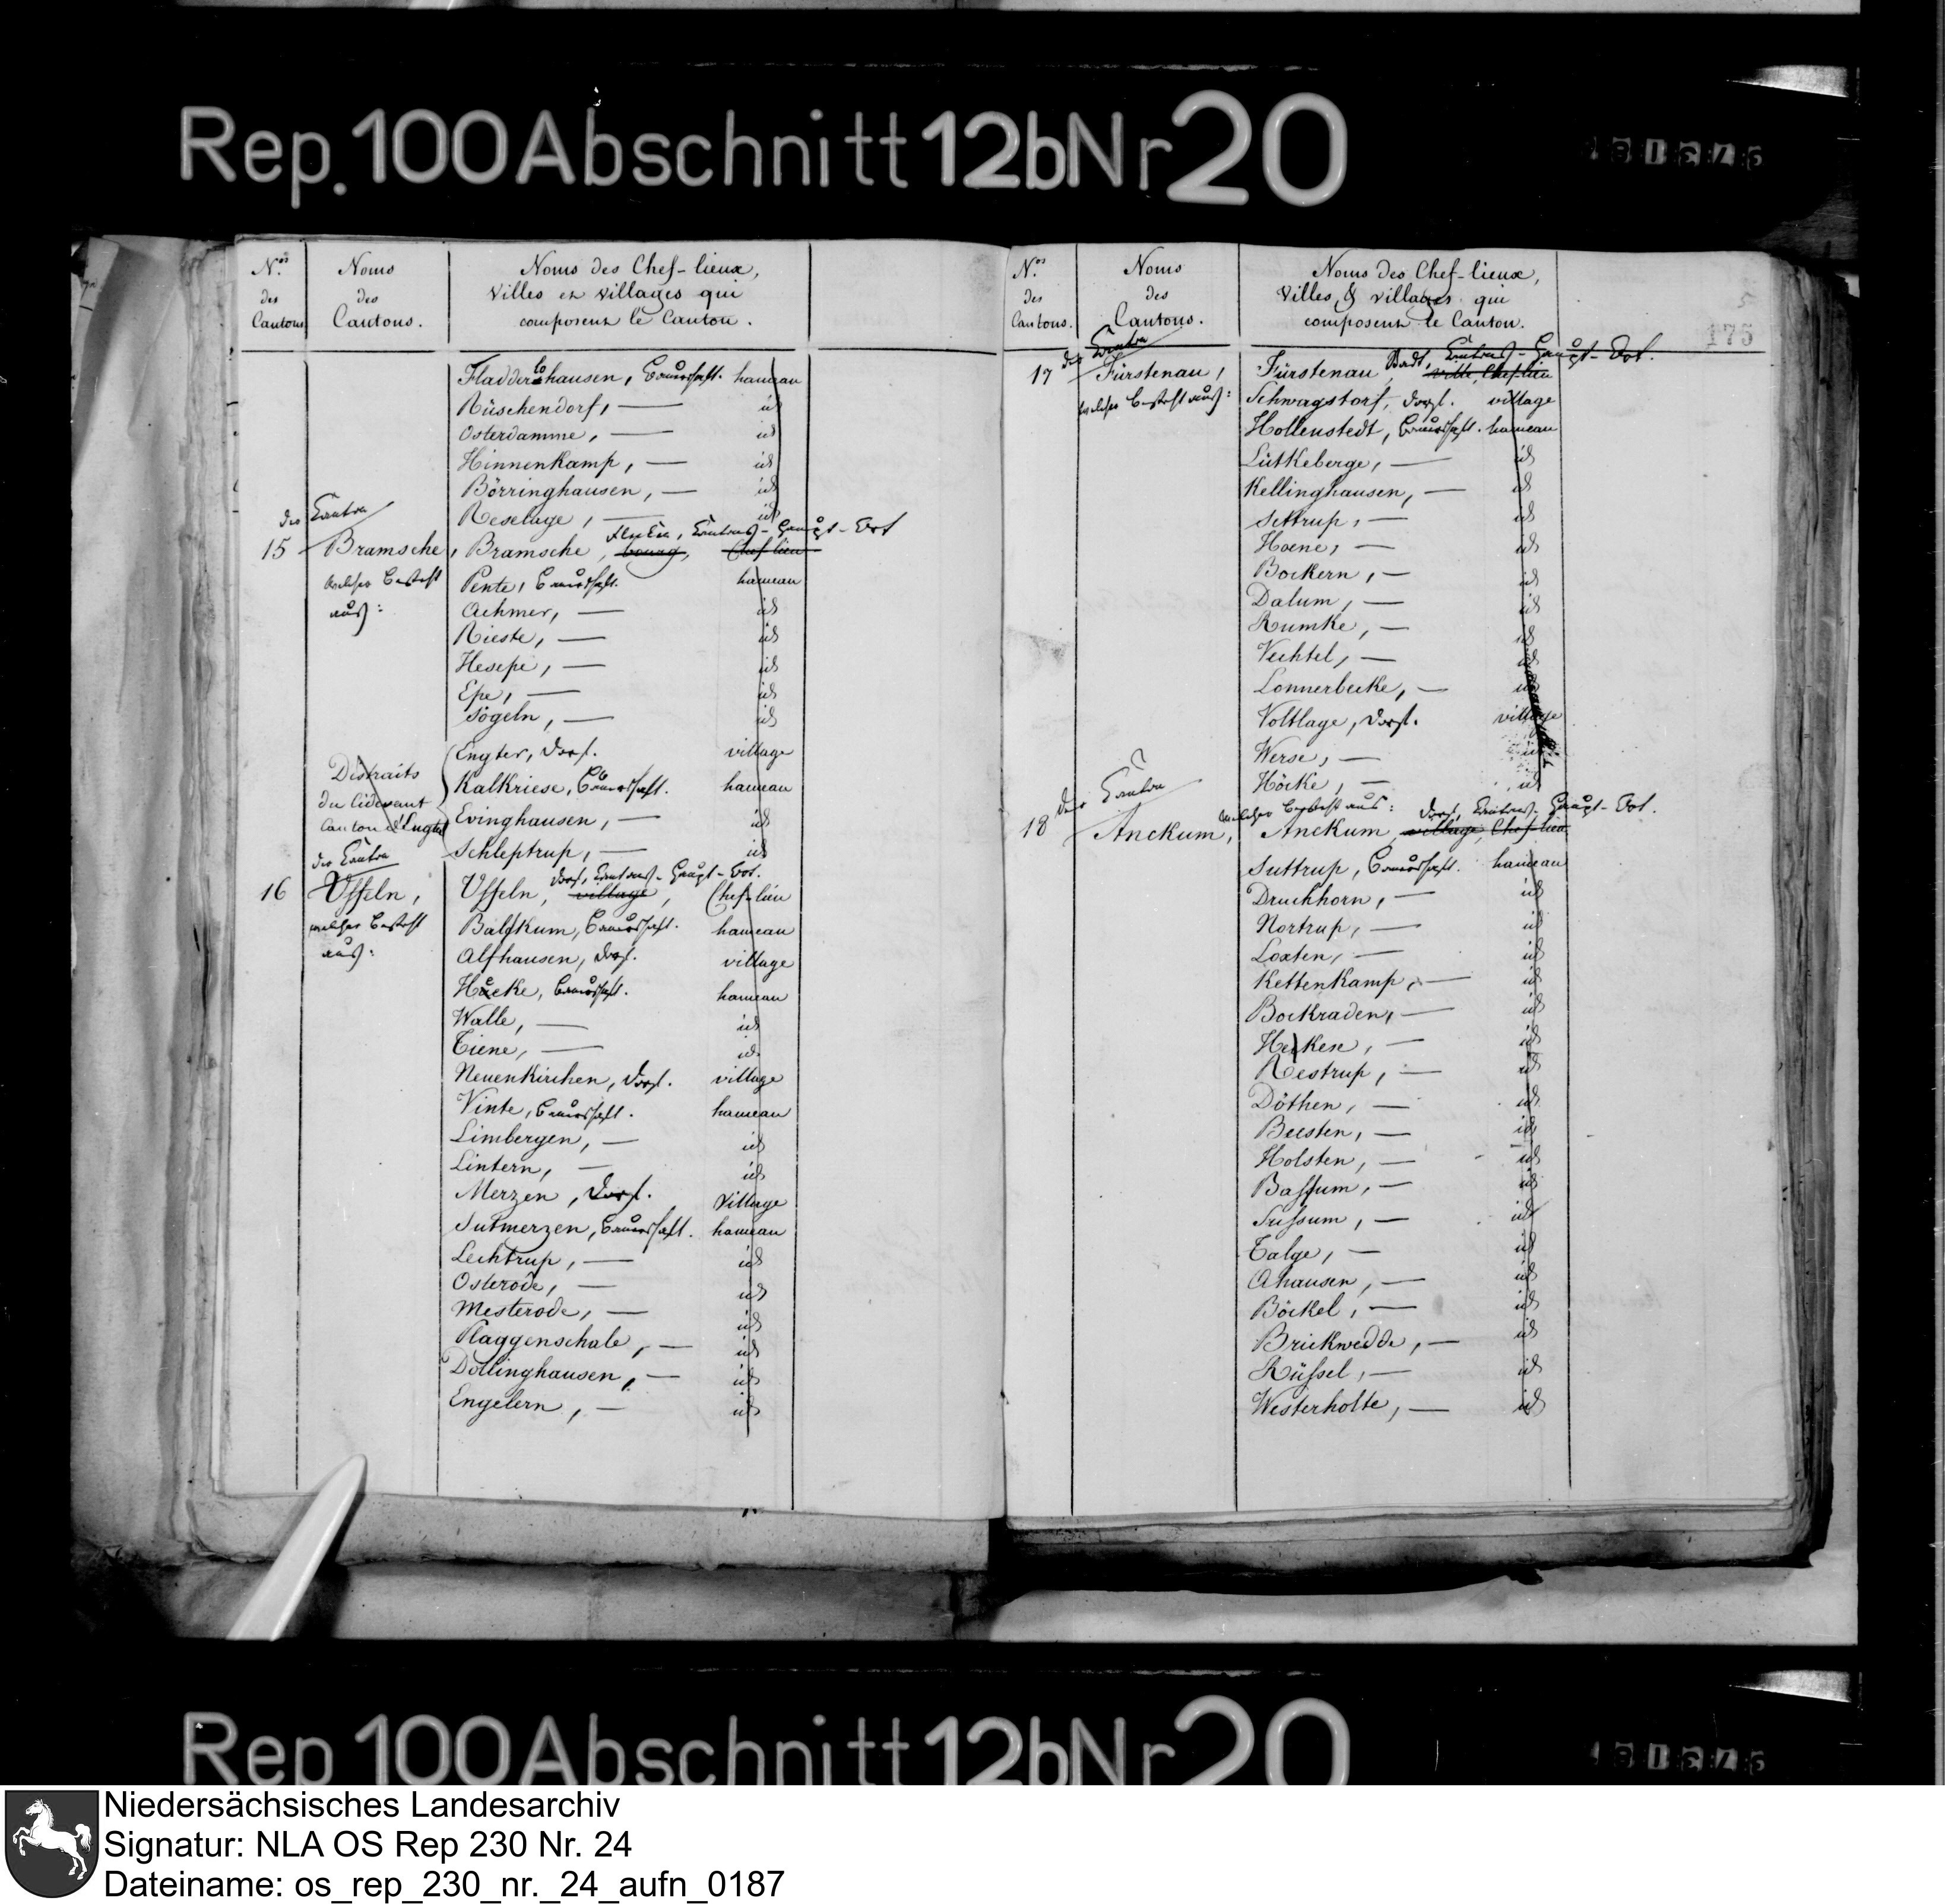 Rep. 100 Abschnitt 12b Nr 20
Nos des Cantons
Noms des Cantons.
Noms des Chef-lieux, villes et villages qui composent le Canton.
Fladderlohausen, Bauerschaft. hameau
Rüschendorf, — id
Osterdamme, — id
Hinnenkamp, — id
Börringhausen, — id
Reselage, — id
der Canton
Flecken, Cantons-Haupt-Ort
15 Bramsche, Bramsche, bourg, Chef lieu
welcher besteht aus:
Pente, Bauerschaft. hameau
Achmer, — id
Rieste, — id
Hesepe, — id
Epe, — id
Sögeln, — id
Distraits du cidevant Canton d'Engter
Engter, Dorf. village
Kalkriese, Bauerschaft. hameau
Evinghausen, — id
Schleptrup, — id
der Canton
Dorf, Cantons-Haupt-Ort.
16 Uffeln, Uffeln, village, Chef-lieu
welcher besteht aus:
Balkum, Bauerschaft. hameau
Alfhausen, Dorf. village
Hacke, Bauerschaft. hameau
Walle, — id
Tiene, — id
Neuenkirchen, Dorf. village
Vinte, Bauerschaft. hameau
Limbergen, — id
Lintern, — id
Merzen, Dorf. village
Sutmerzen, Bauerschaft. hameau
Lechtrup, — id
Osterode, — id
Westerode, — id
Plaggenschale, — id
Döllinghausen, — id
Engelern, — id
Nos des Cantons.
Noms des Cantons.
Noms des Chef-lieux, villes & villages qui composent le Canton.
5
175
der Canton
Stadt, Cantons-Haupt-Ort.
17 Fürstenau, Fürstenau, ville, Chef lieu
welcher besteht aus:
Schwagstorf, Dorf. village
Hollenstedt, Bauerschaft. hameau
Lütkeberge, — id
Kellinghausen, — id
Settrup, — id
Hoene, — id
Bockern, — id
Dalum, — id
Rumke, — id
Vechtel, — id
Lonnerbecke, — id
Voltlage, Dorf. village
Werse, — id
Höcke, — id
der Canton
welcher besteht aus: Dorf, Cantons-Haupt-Ort.
18 Anckum, Anckum, village, Chef-lieu
Suttrup, Bauerschaft. hameau
Druchhorn, — id
Nortrup, — id
Loxten, — id
Kettenkamp, — id
Bockraden, — id
Hecken, — id
Restrup, — id
Döthen, — id
Beesten, — id
Holsten, — id
Bassum, — id
Sussum, — id
Talge, — id
Ahausen, — id
Böckel, — id
Brickwedde, — id
Rüssel, — id
Westerholte, — id
Rep 100 Abschnitt 12b Nr 20
Niedersächsisches Landesarchiv
Signatur: NLA OS Rep 230 Nr. 24
Dateiname: os_rep_230_nr._24_aufn_0187